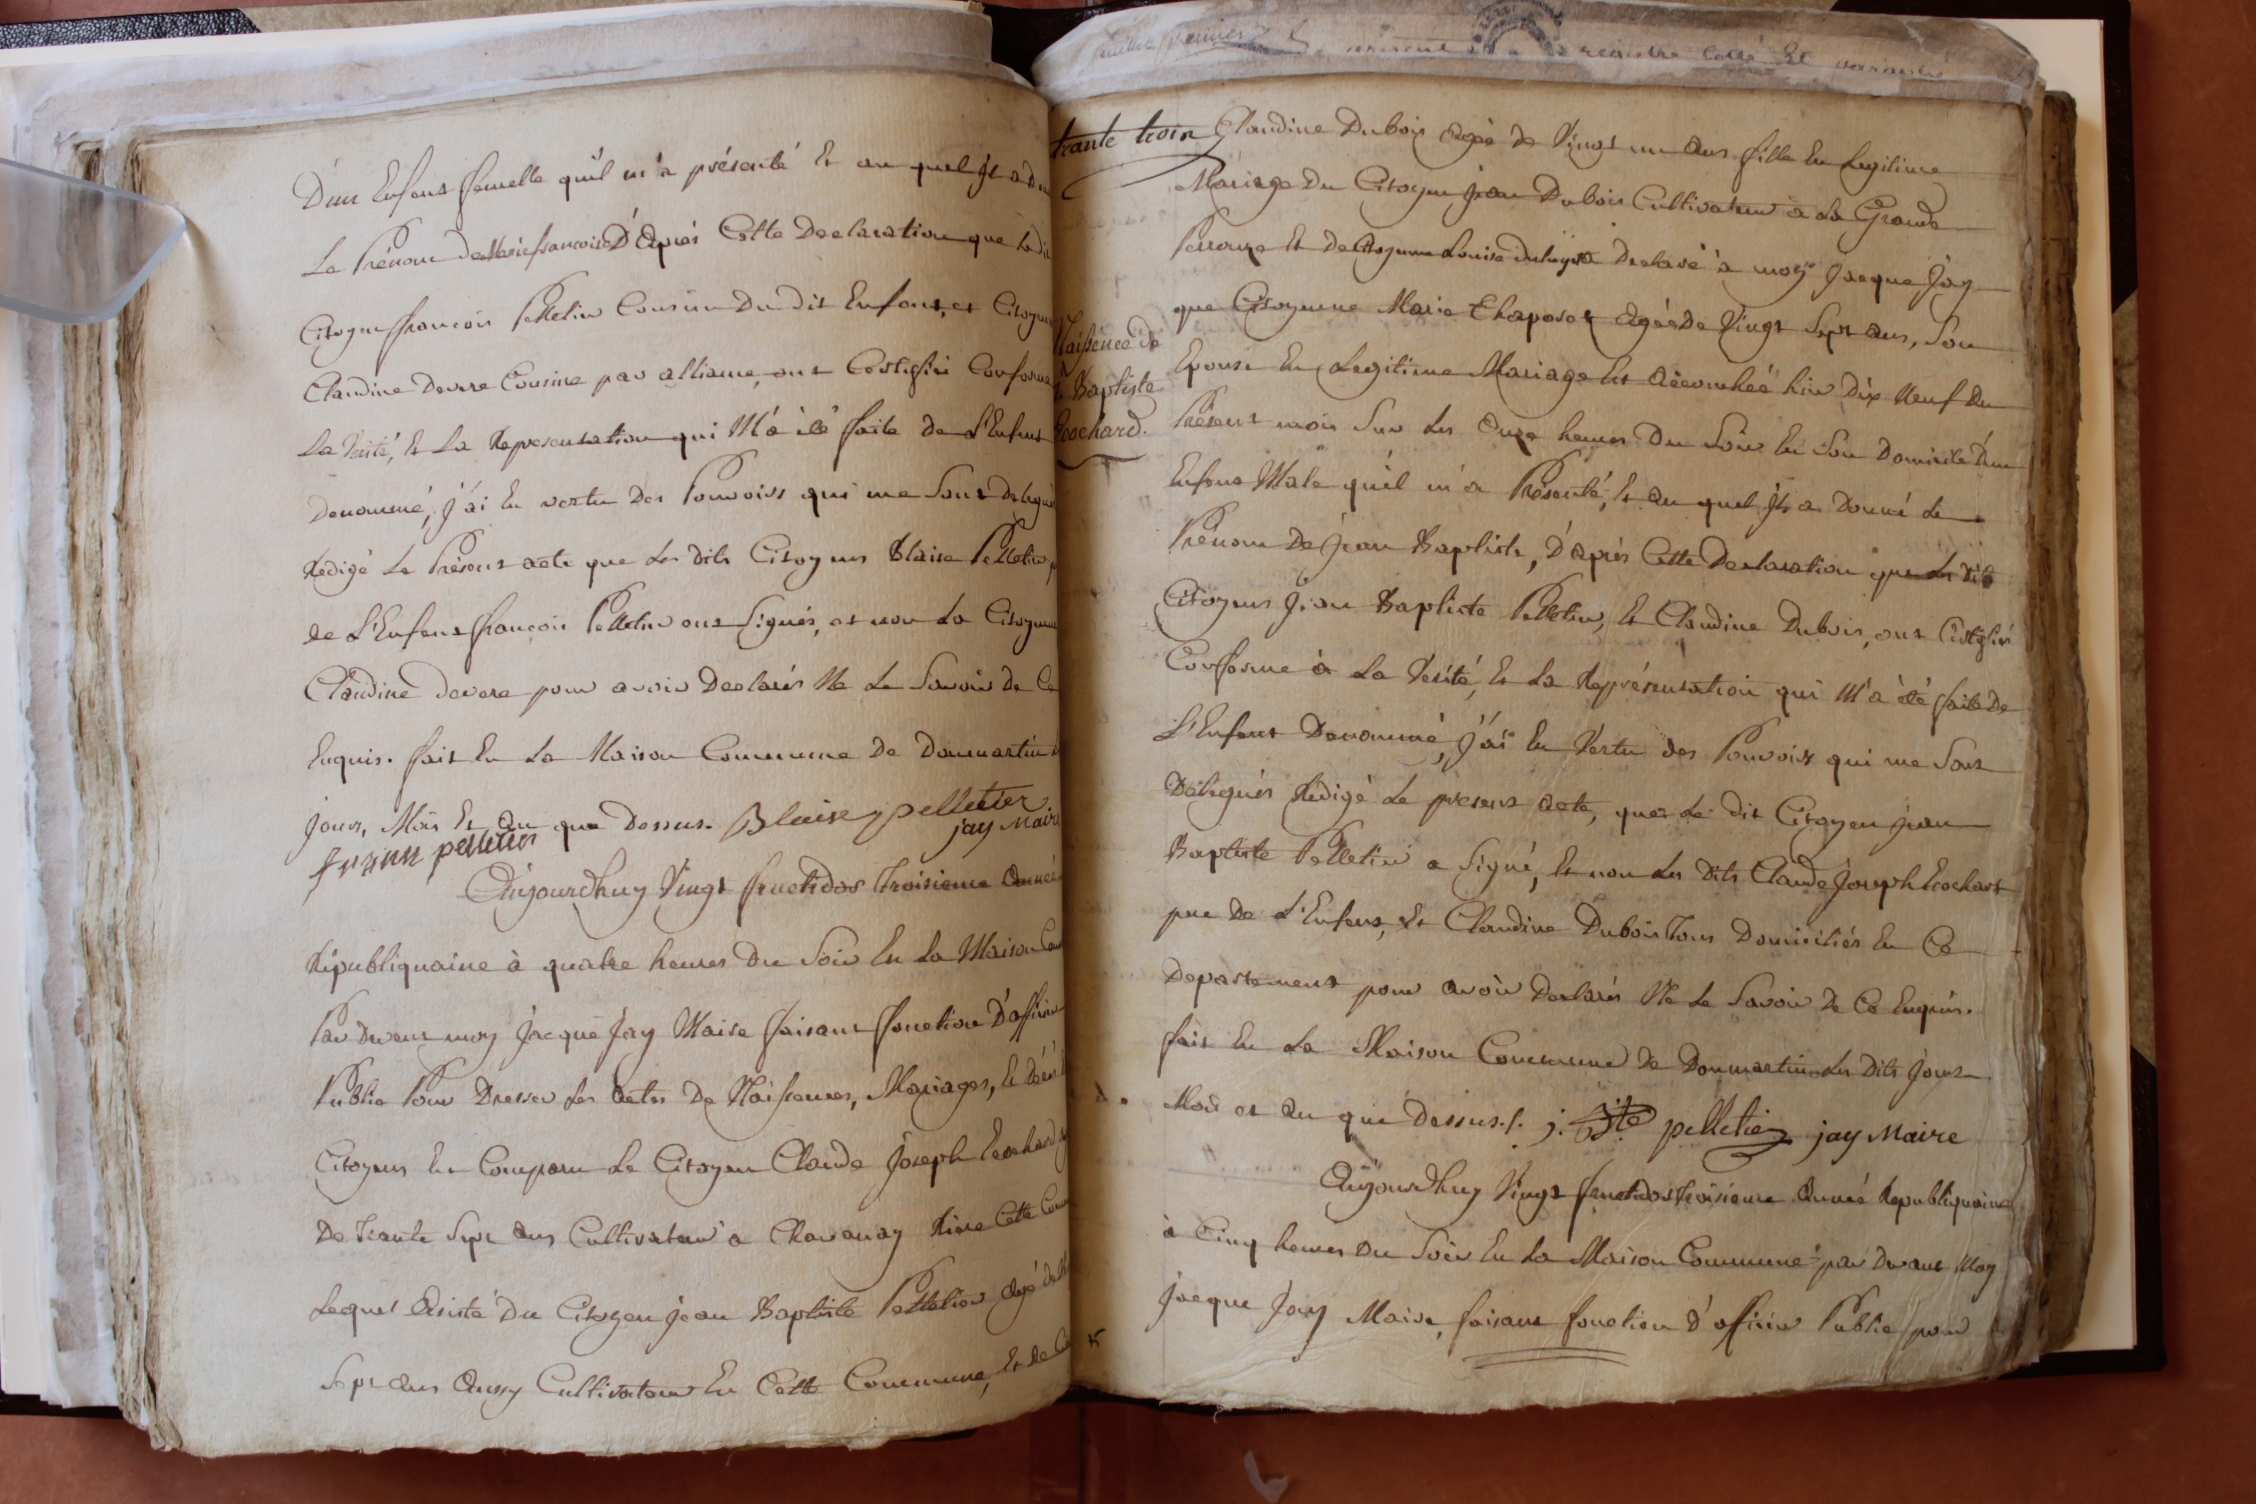 D'un Enfent femelle qu'il m'a présenté Et au quel Jl a
Le Prénom de Marie francoise D'Après Cette Declaration que
Citoyen francois Pelletier Cousin Du dit Enfent, et Citoyenne
Claudine Devere Cousine par alliance, ont Certiffiés Conforme
La Vérité, Et La Représentation qui M'à été faite de L'Enfent
Denommé, j'ai En vertu Des Pouvoirs qui me Sont Delegués
Redigé Le Présent acte que Les dits Citoyens Blaise Pelletier
de L'Enfent francois Pelletier ont Signés, et non La Citoyenne
Claudine devere pour avoir Declarés Ne Le Savoir De Ce
Enquis. fait En La Maison Commune De Dommartin
jours, Mois Et An que Dessus. Blaise pelletier
pelletier jay Maire
Aujourdhuy Vingt fructidor Troisieme Année
Republiquaine à quatre heures Du Soir En La Maison
Par Devent moy Jacque Jay Maire faisant fonction D'officier
Public Pour Dresser Les Actes De Naissences, Mariages, Et décès
Citoyens Est Comparu Le Citoyen Claude Joseph Ecochard
De Trante Sept ans Cultivateur a Chavanay Riere Cette
Lequel Assisté Du Citoyen Jean Baptiste Pelletier Agé
Sept ans Aussy Cultivateur En Cette Commune, Et de
trante trois
Claudine Dubois Agée de Vingt un Ans fille En Legitime
Mariage Du Citoyen Jean Dubois Cultivateur à La Grande
Et De Citoyenne Louise a Declaré à moy Jacque Jay
que Citoyenne Marie Chaposot Agée De Vingt Sept ans, Son
Epouse En Legitime Mariage Est Accouchée hier Dix Neuf Du
Présent mois Sur Les Onze heures Du Soir En Son Domicile D'un
Enfent Male qu'il m'a Présenté, Et au quel Jl a Donné Le
Prénom De Jean Baptiste, D'après Cette Declaration que Les dits
Citoyens Jean Baptiste Pelletier, Et Claudine Dubois, ont Certiffiés
Conforme à La Vérité, Et La Représentation qui M'a été faite De
L'Enfent Denommé, j'ai En Vertu des Pouvoirs qui me Sont
Delegués Redigé Le present acte, que Le dit Citoyen jean
Baptiste Pelletier a Signé, Et non Les Dits Claude Joseph Ecochard
pere De L'Enfent, Et Claudine Dubois Tous Domiciliés En Ce
Departement pour avoir Declarés Ne Le Savoir De Ce Enquis.
fait En La Maison Commune de Dommartin Les Dits Jours
Mois et An que dessus./. j. Bte pelletier jay Maire
Aujourdhuy Vingt fructidor Troisieme Année Republiquaine
à Cinq heures Du Soir En La Maison Commune par Devant Moy
Jacque Jay Maire, faisant fonction d'officier Public pour
Naissence de
Baptiste
Ecochard.